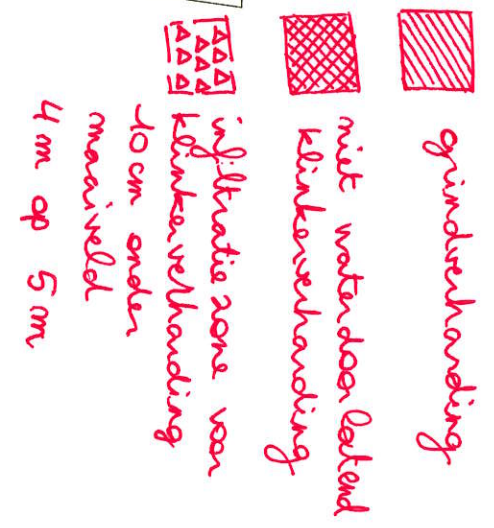 grindverharding
niet waterdoorlatend
klinkerverharding
infiltratie zone voor
klinkerverharding
10 cm onder
maaiveld
4 m op 5 m